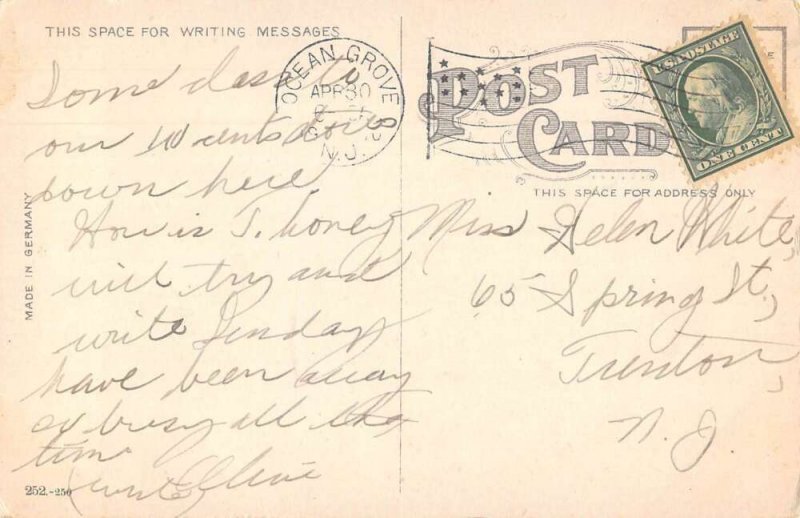 THIS SPACE FOR WRITING MESSAGES
Some class to
our 10 cents
down here.
How is T. honey
will try and
write Sunday
have been away
so busy all the
time
(write)
MADE IN GERMANY
252.-250
OCEAN GROVE
APR 30
N.J.
POST
CARD
THIS SPACE FOR ADDRESS ONLY
U.S. POSTAGE
ONE CENT
Miss Helen White,
65 Spring St,
Trenton,
N. J